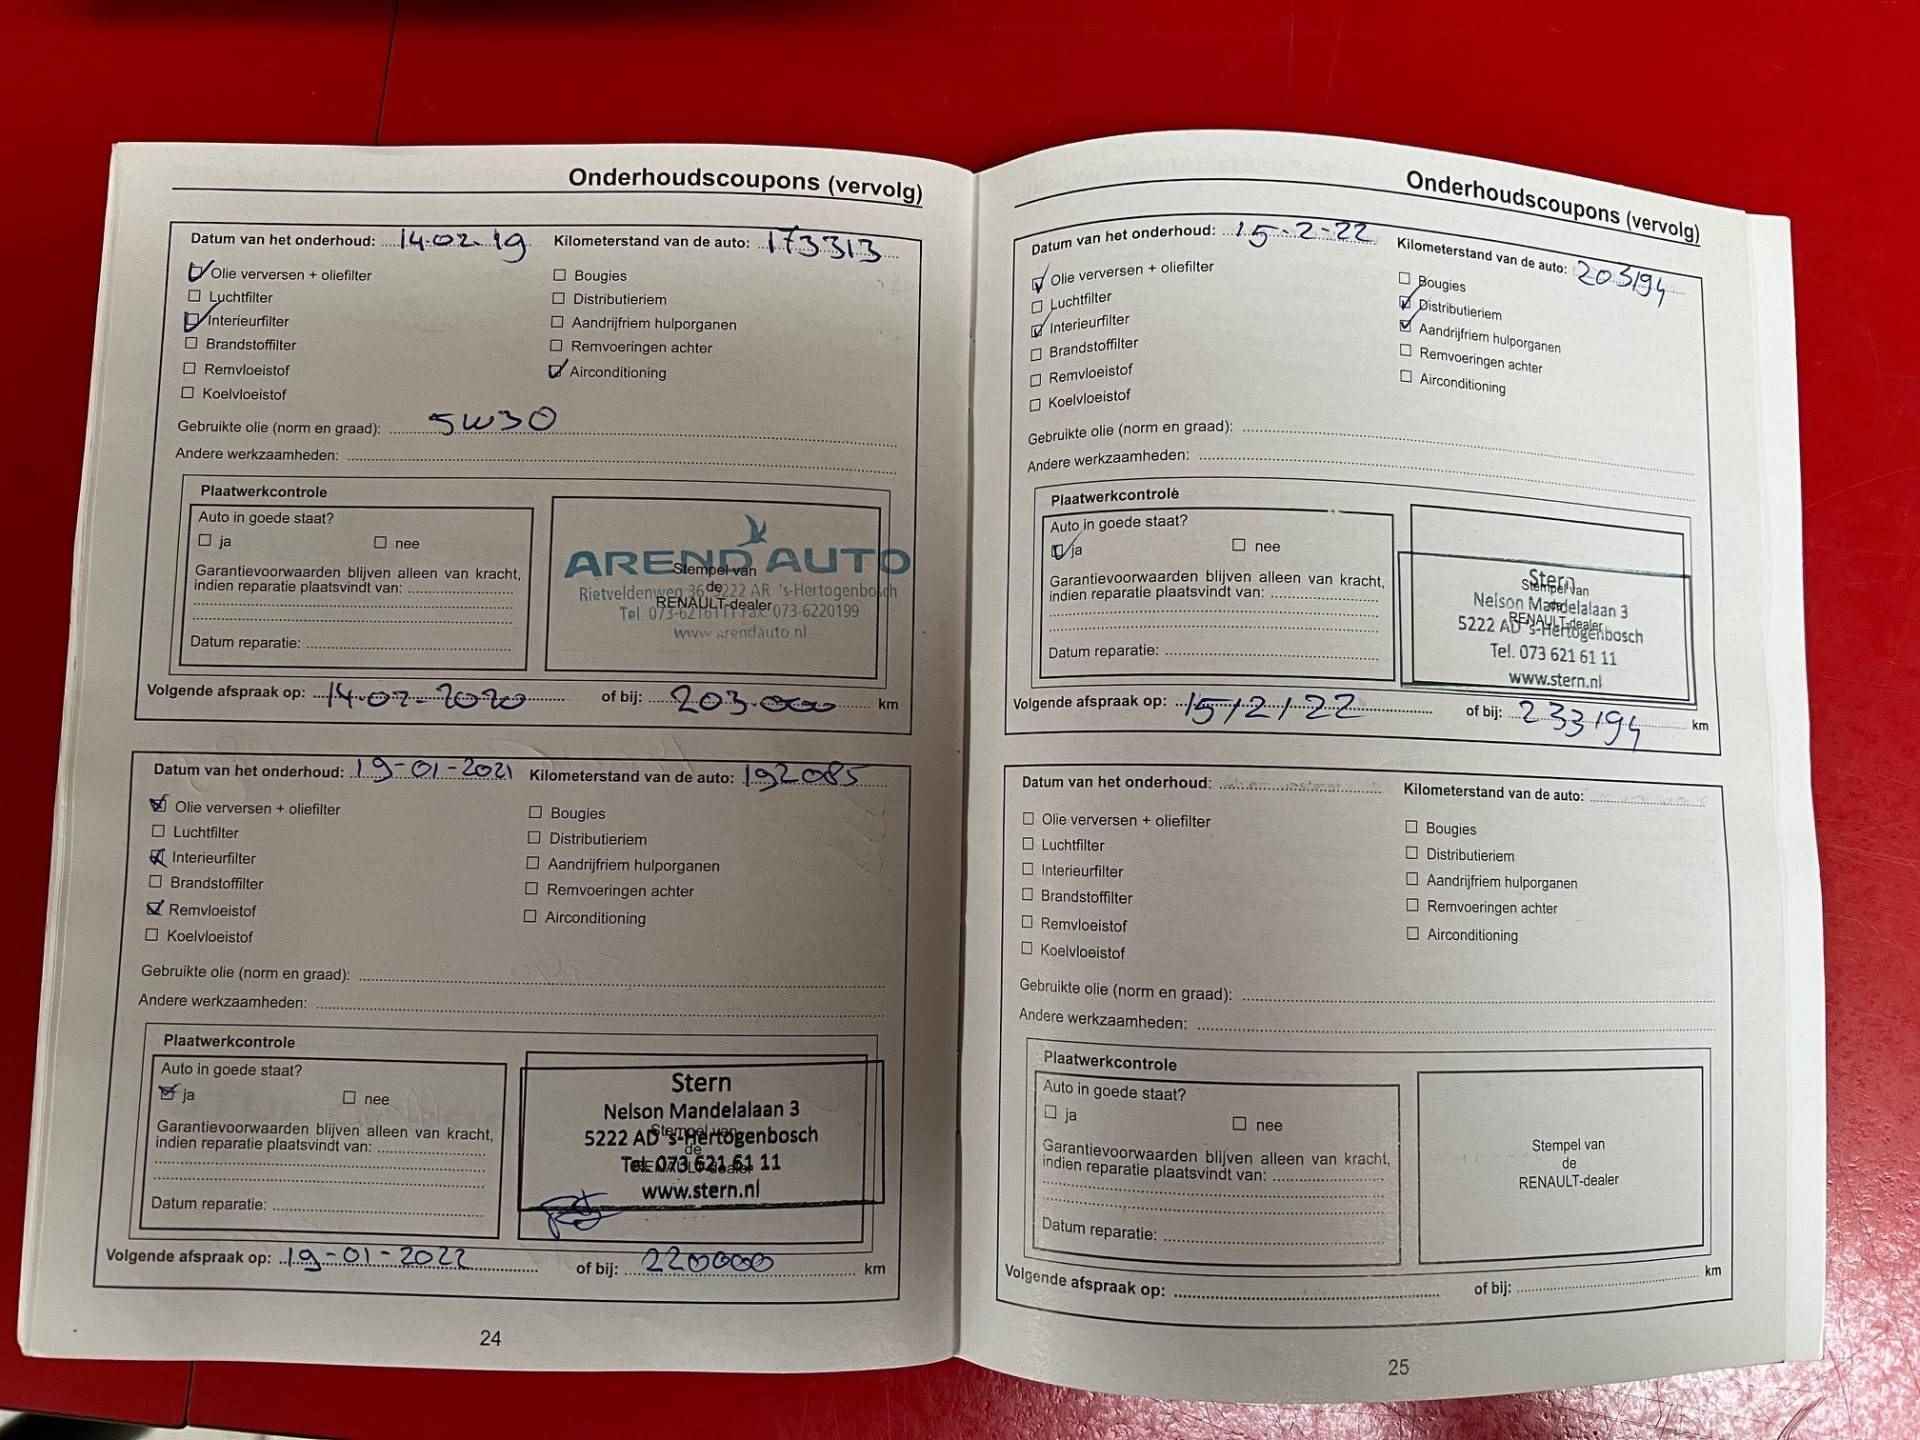 Onderhoudscoupons (vervolg)
Datum van het onderhoud: 14-02-19 Kilometerstand van de auto: 173313
Olie verversen + oliefilter
Luchtfilter
Interieurfilter
Brandstoffilter
Remvloeistof
Koelvloeistof
Bougies
Distributieriem
Aandrijfriem hulporganen
Remvoeringen achter
Airconditioning
Gebruikte olie (norm en graad): 5W30
Andere werkzaamheden:
Plaatwerkcontrole
Auto in goede staat?
ja nee
Garantievoorwaarden blijven alleen van kracht,
indien reparatie plaatsvindt van:
Datum reparatie:
AREND AUTO
Rietveldenweg 36 5222 AR 's-Hertogenbosch
Tel 073-6216111 Fax 073-6220199
www.arendauto.nl
Stempel van
de
RENAULT-dealer
Volgende afspraak op: 14-02-2020 of bij: 203.000 km
Datum van het onderhoud: 19-01-2021 Kilometerstand van de auto: 192085
Olie verversen + oliefilter
Luchtfilter
Interieurfilter
Brandstoffilter
Remvloeistof
Koelvloeistof
Bougies
Distributieriem
Aandrijfriem hulporganen
Remvoeringen achter
Airconditioning
Gebruikte olie (norm en graad):
Andere werkzaamheden:
Plaatwerkcontrole
Auto in goede staat?
ja nee
Garantievoorwaarden blijven alleen van kracht,
indien reparatie plaatsvindt van:
Datum reparatie:
Stern
Nelson Mandelalaan 3
5222 AD 's-Hertogenbosch
Tel. 073 621 61 11
www.stern.nl
Stempel van
de
RENAULT-dealer
Volgende afspraak op: 19-01-2022 of bij: 220000 km
24
Onderhoudscoupons (vervolg)
Datum van het onderhoud: 15-2-22 Kilometerstand van de auto: 203194
Olie verversen + oliefilter
Luchtfilter
Interieurfilter
Brandstoffilter
Remvloeistof
Koelvloeistof
Bougies
Distributieriem
Aandrijfriem hulporganen
Remvoeringen achter
Airconditioning
Gebruikte olie (norm en graad):
Andere werkzaamheden:
Plaatwerkcontrole
Auto in goede staat?
ja nee
Garantievoorwaarden blijven alleen van kracht,
indien reparatie plaatsvindt van:
Datum reparatie:
Stern
Nelson Mandelalaan 3
5222 AD 's-Hertogenbosch
Tel. 073 621 61 11
www.stern.nl
Stempel van
de
RENAULT-dealer
Volgende afspraak op: 15/2/22 of bij: 233194 km
Datum van het onderhoud: Kilometerstand van de auto:
Olie verversen + oliefilter
Luchtfilter
Interieurfilter
Brandstoffilter
Remvloeistof
Koelvloeistof
Bougies
Distributieriem
Aandrijfriem hulporganen
Remvoeringen achter
Airconditioning
Gebruikte olie (norm en graad):
Andere werkzaamheden:
Plaatwerkcontrole
Auto in goede staat?
ja nee
Garantievoorwaarden blijven alleen van kracht,
indien reparatie plaatsvindt van:
Datum reparatie:
Stempel van
de
RENAULT-dealer
Volgende afspraak op: of bij: km
25